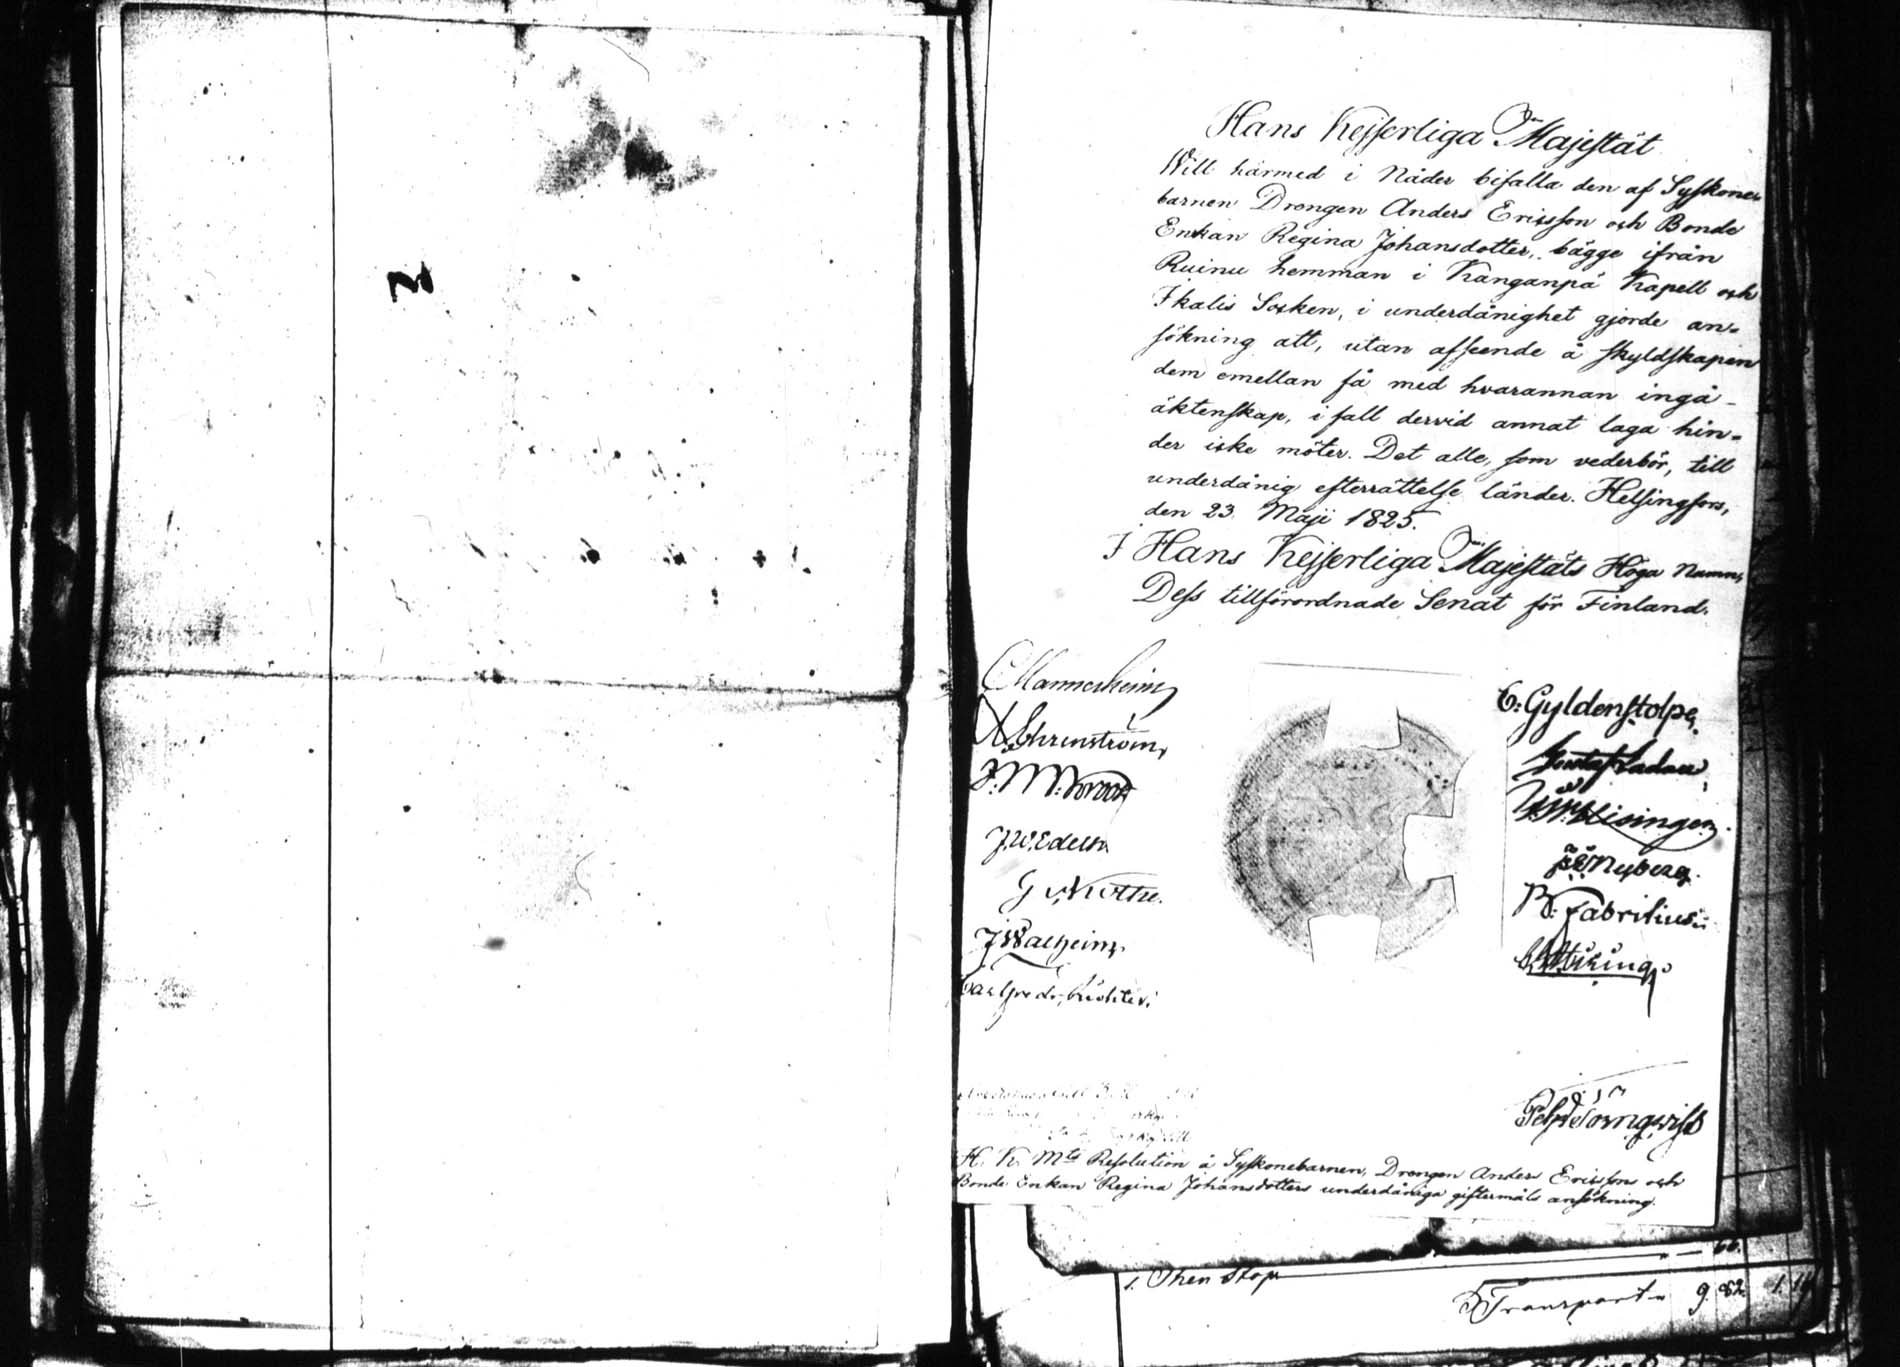 Hans Kejserliga Majestät
Will härmed i Nåder bifalla den af Syskone-
barnen Drengen Anders Ericsson och Bonde
Enkan Regina Johansdotter, bägge ifrån
Ruinu hemman i Kanganpä Kapell och
Ikalis Socken, i underdånighet gjorde an-
sökning att, utan afseende å skyldskapen
dem emellan få med hvarannan ingå
äktenskap, i fall dervid annat laga hin-
der icke möter. Det alle, som vederbör, till
underdånig efterrättelse länder. Helsingfors,
den 23. Maji 1825.
I Hans Kejserliga Majestäts Höga Namn,
Dess tillförordnade Senat för Finland.
C Mannerheim
C: Gyldenstolpe
Ehrenström
Gustaf Ladau
Hisinger
J.W. Edelh
Nyberg
B: Fabritius
J Walheim
Carl Fredr. Richter
Törnqvist
H. K. Mts Resolution å Syskonebarnen, Drengen Anders Ericssons och
Bonde Enkan Regina Johansdotters underdåniga giftermåls ansökning.
Transport 9 82